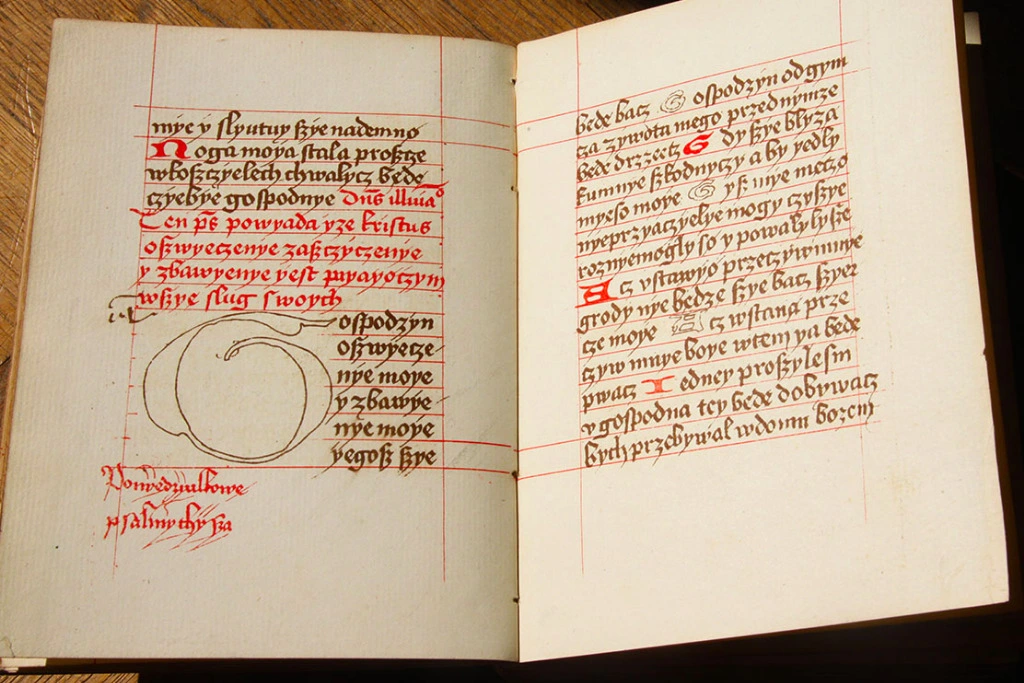 mye y slyutuy szye nademno
Noga moya stala proszcze
wkoszczyelech chwalycz bede
czyebye gospodnye Dns illuia°
Ten ps powyada yze kristus
oszwyeczenye zaszczyczenye
y zbawyenye yest przyayoczym
wszye slug swoych
Gospodzyn
oszwyecze
nye moye
y zbawye
nye moye
yegosz szye
Ponyedzyalkowe
psalmy thy sza
bede bacz Gospodzyn odgym
cza zywota mego przed nymze
bede drzzecz Gdy szye blyza
kumnye szkodnyczy aby yedly
myeso moye Gysz mye meczo
nyeprzyaczyelye mogy czyszye
roznyemogly so y powalyly sze
Acz vstawyo przeczywmnye
grody nye bedze szye bacz szyer
cze moye Acz wstana prze
czyw mnye boye wtem ya bede
pwacz Iedney proszylesm
v gospodna tey bede dobywacz
bych przebywal wdomu bozem